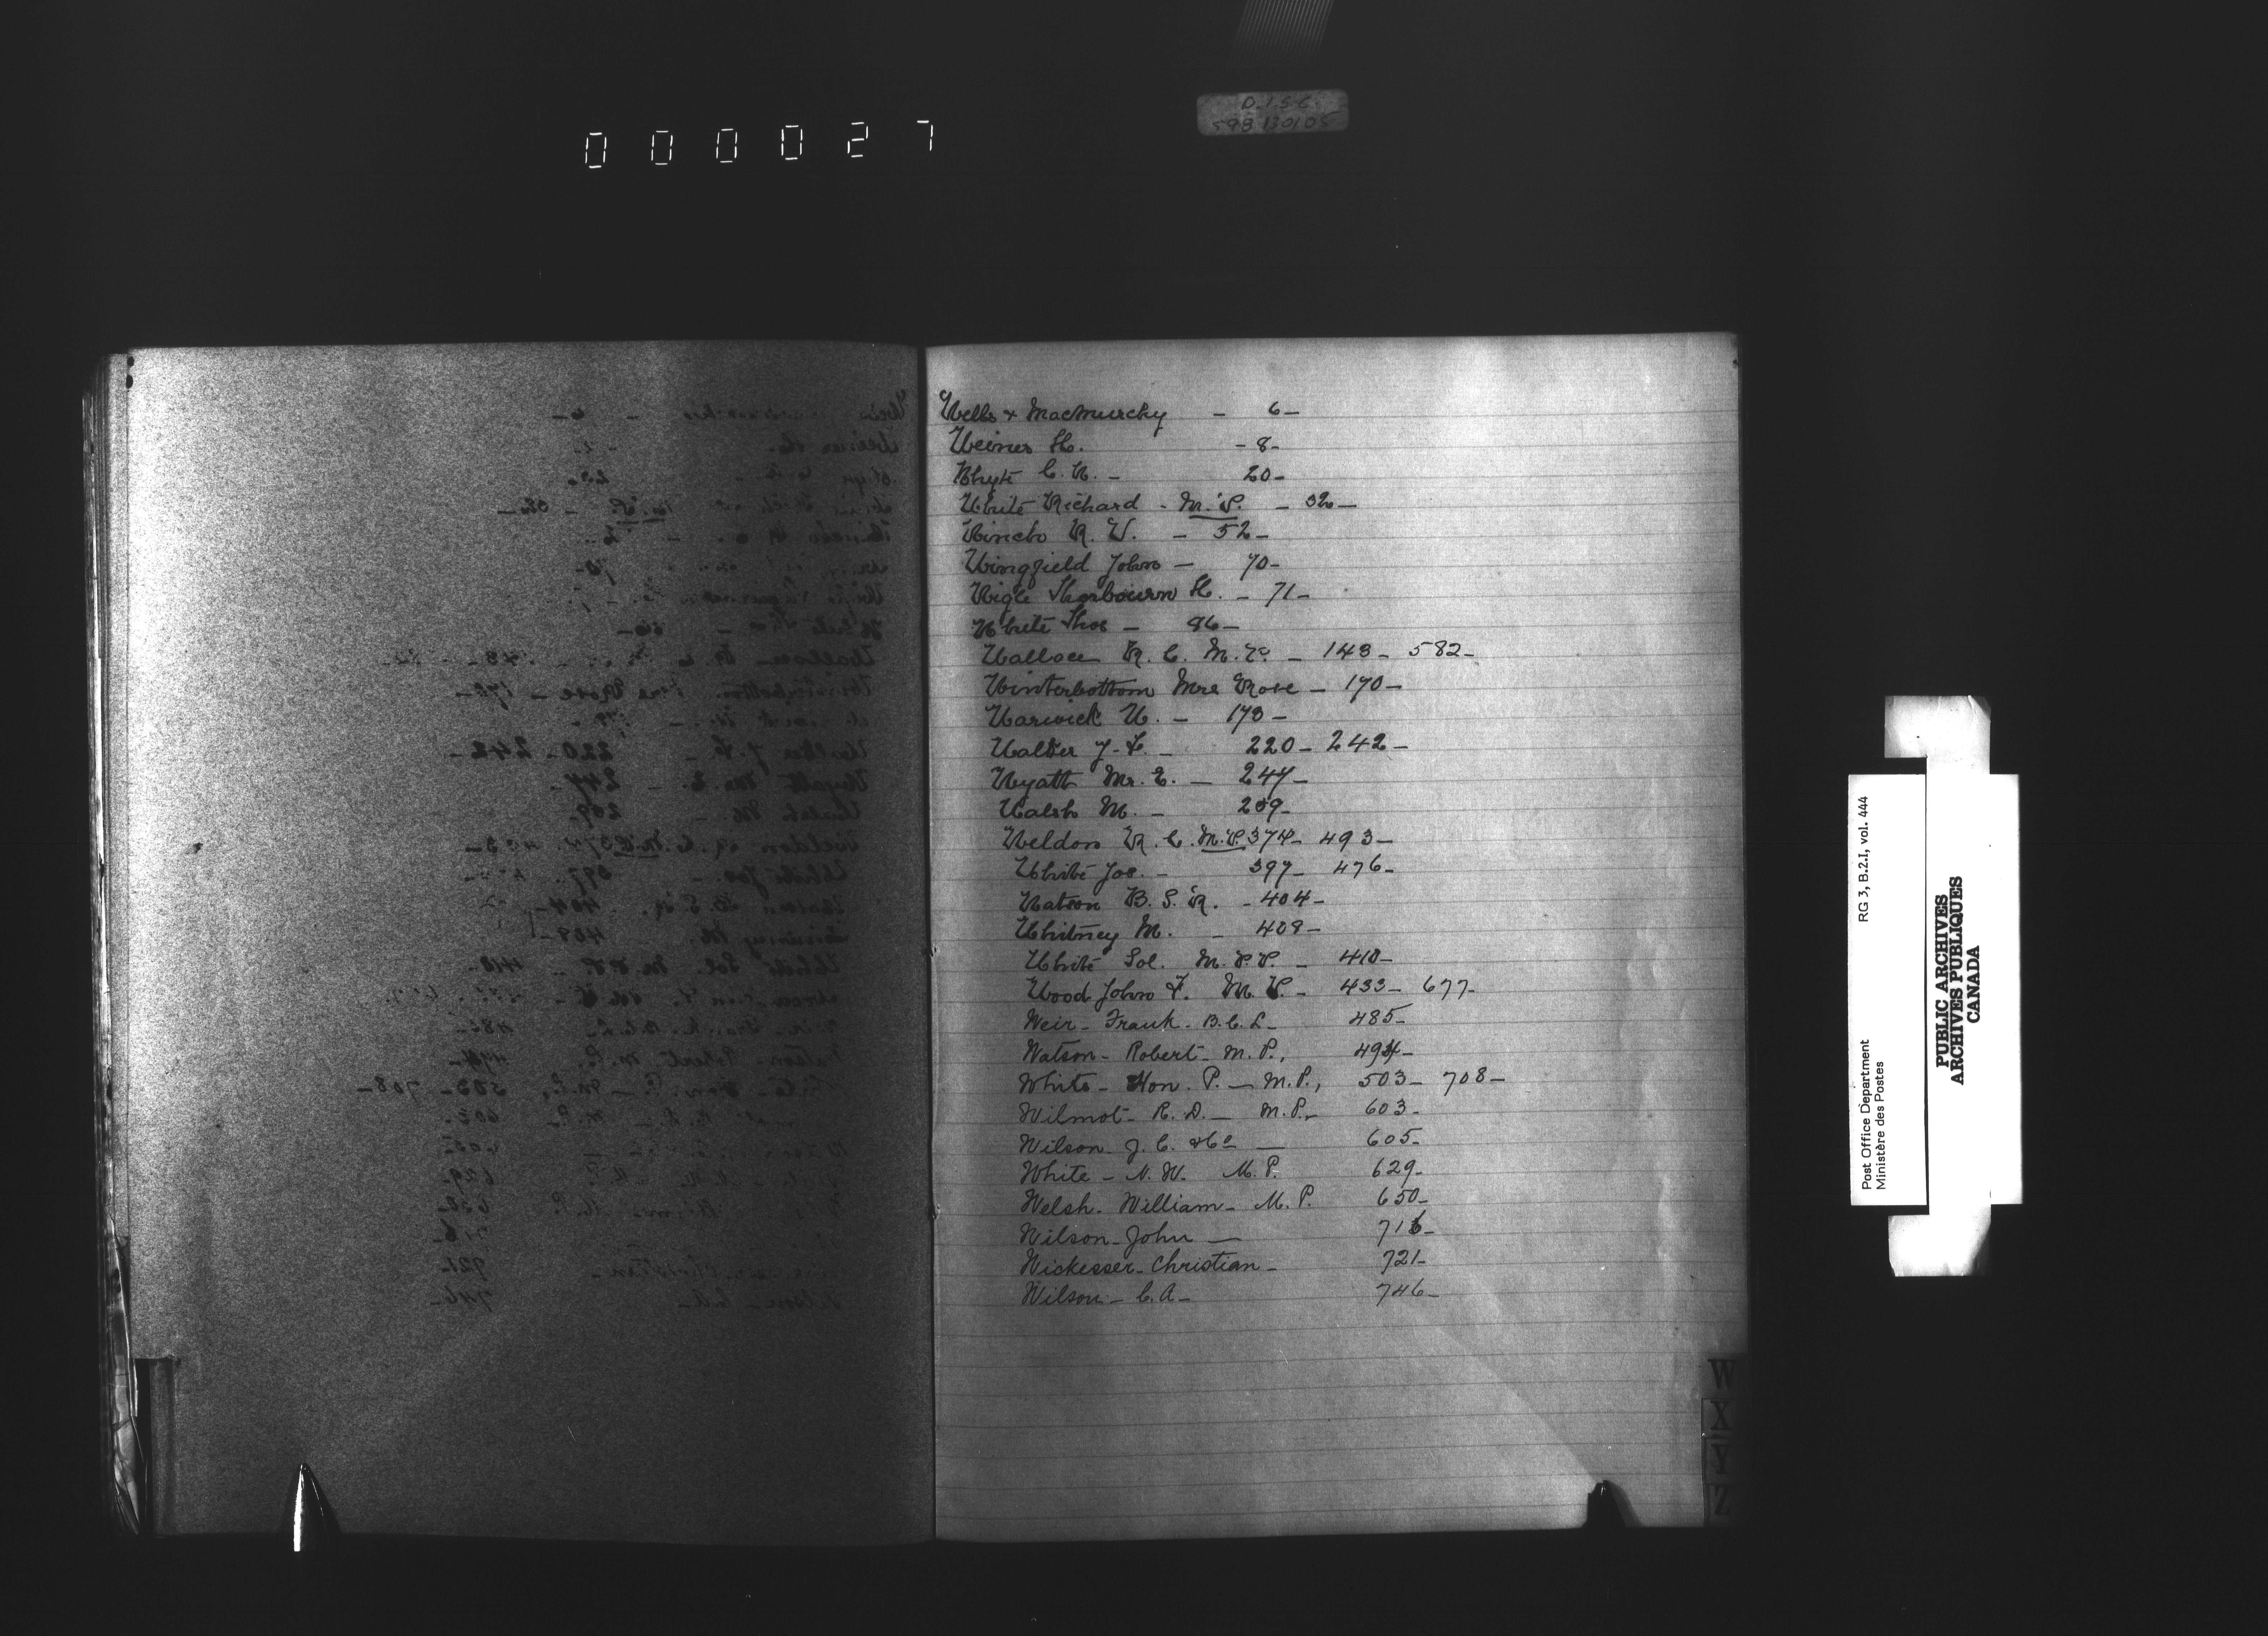 000027
D.I.S.C.
598 130105
Wells & MacMurchy - 6-
Weiner H. - 8-
Whyte C. R. - 20-
White Richard - M.P. - 32-
R. W. - 52-
Wingfield John - 70-
Wigle H. - 71-
White Thos - 86-
Wallace R. C. - 143- 582-
Winterbottom Mrs Rose - 170-
Warwick W. - 173-
Walter J. F. - 220- 242-
Wyatt Mr. E. - 247-
Walsh M. - 259-
Weldon R. C. M.P. 374- 493-
White Jos. - 397- 476-
Watson B. S. R. - 404-
Whitney M. - 409-
White Sol. M.P.P. - 410-
Wood John F. M.P. - 433- 677-
Weir- Frank- B.C.L- 485-
Watson- Robert- M.P., 494-
White- Hon. P.- M.P., 503- 708-
Wilmot- R. D.- M.P.- 603-
Wilson- J. C. & Co - 605-
White - N. W. M.P. 629-
Welsh- William- M.P. 650-
Wilson- John - 716-
Wickesser- Christian- 721-
Wilson- C. A- 746-
W
X
Y
Z
Post Office Department RG 3, B.2.I, vol. 444
Ministère des Postes
PUBLIC ARCHIVES
ARCHIVES PUBLIQUES
CANADA